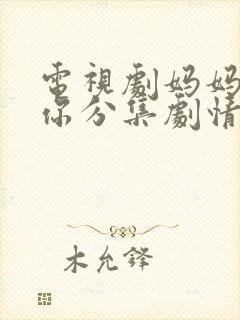 電視劇妈妈
你分集劇情
木允鋒